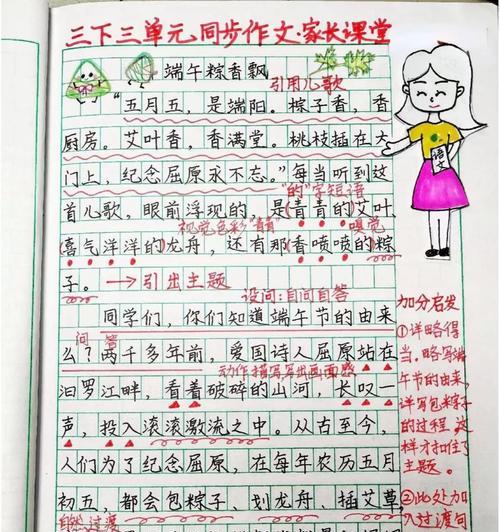 三下三单元同步作文·家长课堂
端午粽香飘
引用儿歌
"五月五，是端阳。粽子香，香
厨房。艾叶香，香满堂。桃枝插在大
门上，纪念屈原永不忘。"每当听到这
"的"字短语
首儿歌，眼前浮现的，是青青的艾叶
视觉色彩"青青" 嗅觉
喜气洋洋的龙舟，还有那香喷喷的粽
子。→引出主题
设问：自问自答
同学们，你们知道端午节的由来
问 答
么？两千多年前，爱国诗人屈原站在
动作描写写出画面感
汨罗江畔，看着破碎的山河，长叹一
声，投入滚滚激流之中。从古至今，
人们为了纪念屈原，在每年农历五月
初五，都会包粽子、划龙舟、插艾草
自然过渡
语文
加分启发
①详略得
当。略写端
午节的由来，
详写包粽子
的过程，这
样才扣住了
主题。
②此处加
入过渡句